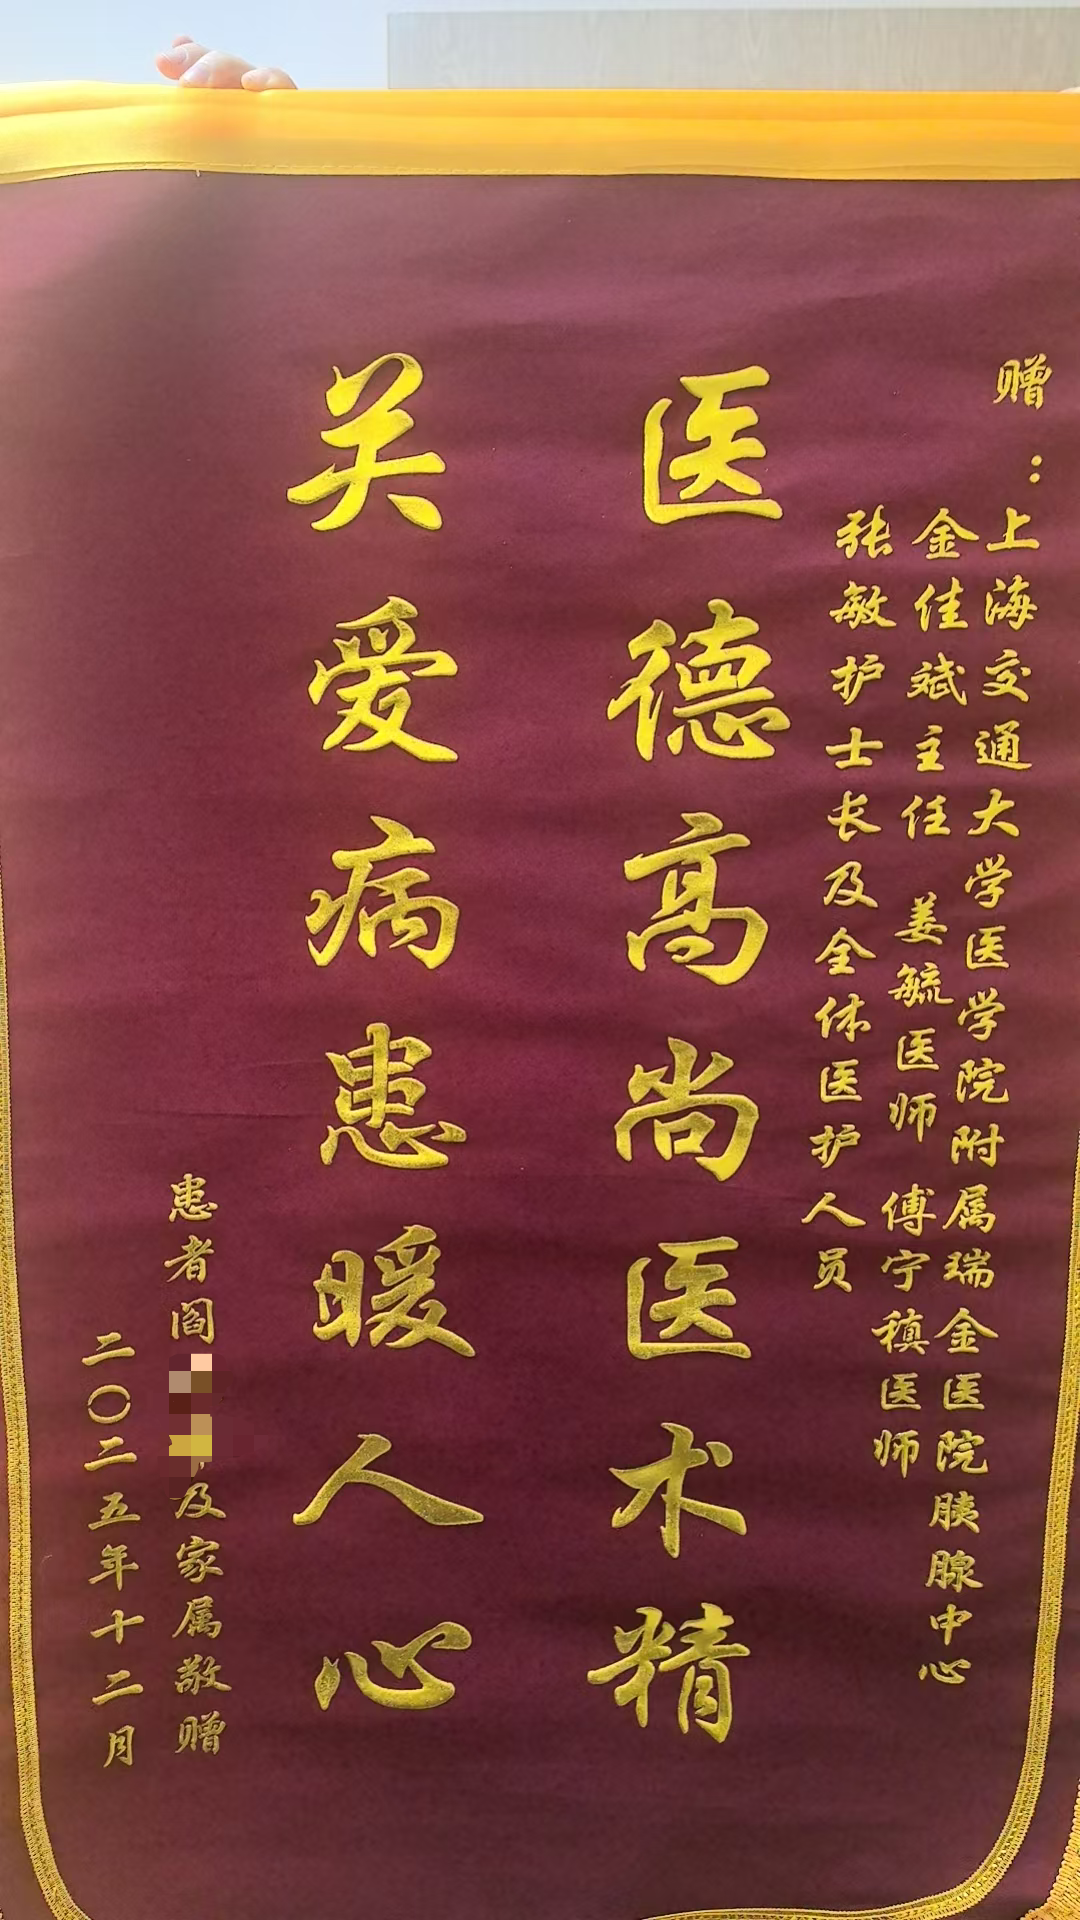 赠：
上海交通大学医学院附属瑞金医院胰腺中心
金佳斌主任 姜毓医师 傅宁稹医师
张敏护士长及全体医护人员
医德高尚医术精
关爱病患暖人心
患者阎
及家属敬赠
二〇二五年十二月